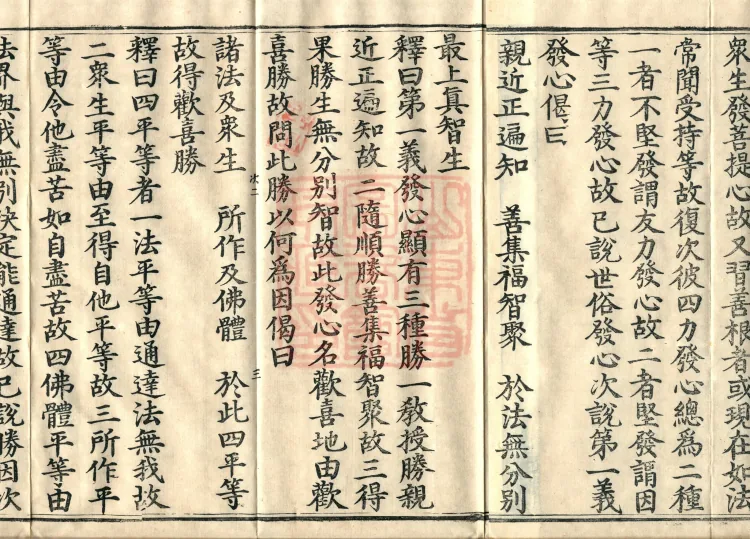 衆生發菩提心故又習善根者或現在如法
常聞受持等故復次彼四力發心總爲二種
一者不堅發謂友力發心故二者堅發謂因
等三力發心故已說世俗發心次說第一義
發心偈曰
親近正遍知　善集福智聚　於法無分別
最上真智生
釋曰第一義發心顯有三種勝一教授勝親
近正遍知故二隨順勝善集福智聚故三得
果勝生無分別智故此發心名歡喜地由歡
喜勝故問此勝以何爲因偈曰
諸法及衆生　所作及佛體　於此四平等
故得歡喜勝
釋曰四平等者一法平等由通達法無我故
二衆生平等由至得自他平等故三所作平
等由令他盡苦如自盡苦故四佛體平等由
法界與我無別決定能通達故已說勝因次